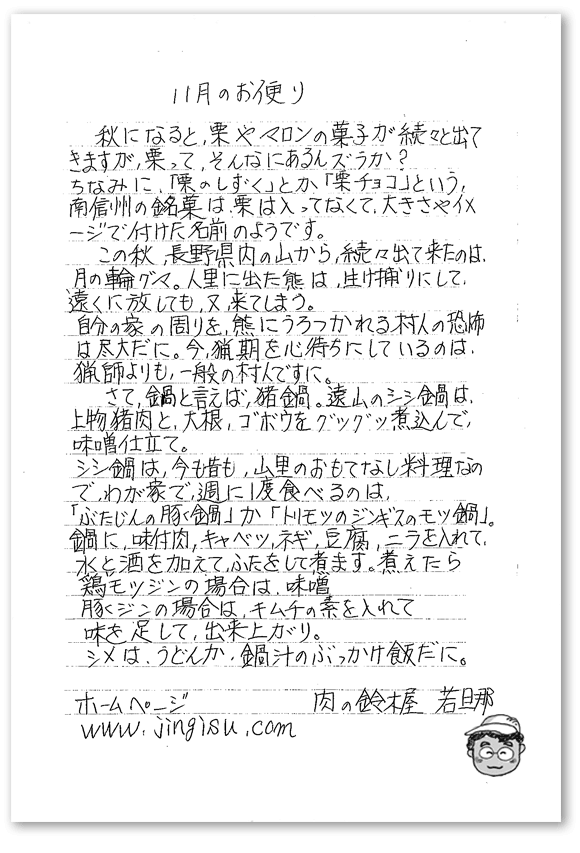 11月のお便り
秋になると、栗やマロンの菓子が続々と出て
きますが、栗って、そんなにあるんズラか?
ちなみに、「栗のしずく」とか「栗チョコ」という、
南信州の銘菓は、栗は入ってなくて、大きさやイメ
ージで付けた名前のようです。
この秋、長野県内の山から、続々出て来たのは、
月の輪グマ。人里に出た熊は、生け捕りにして、
遠くに放しても、又、来てしまう。
自分の家の周りを、熊にうろつかれる村人の恐怖
は尽大だに。今、猟期を心待ちにしているのは、
猟師よりも、一般の村人ですに。
さて、鍋と言えば、猪鍋。遠山のシシ鍋は、
上物猪肉と、大根、ゴボウをグツグツ煮込んで、
味噌仕立て。
シシ鍋は、今も昔も、山里のおもてなし料理なの
で、わが家で、週に1度食べるのは、
「ぶたじんの豚鍋」か「トリモツのジンギスのモツ鍋」。
鍋に、味付肉、キャベツ、ネギ、豆腐、ニラを入れて、
水と酒を加えて、ふたをして煮ます。煮えたら
鶏モツジンの場合は、味噌
豚ジンの場合は、キムチの素を入れて
味を足して、出来上がり。
シメは、うどんか、鍋汁のぶっかけ飯だに。
ホームページ 肉の鈴木屋 若旦那
www.jingisu.com